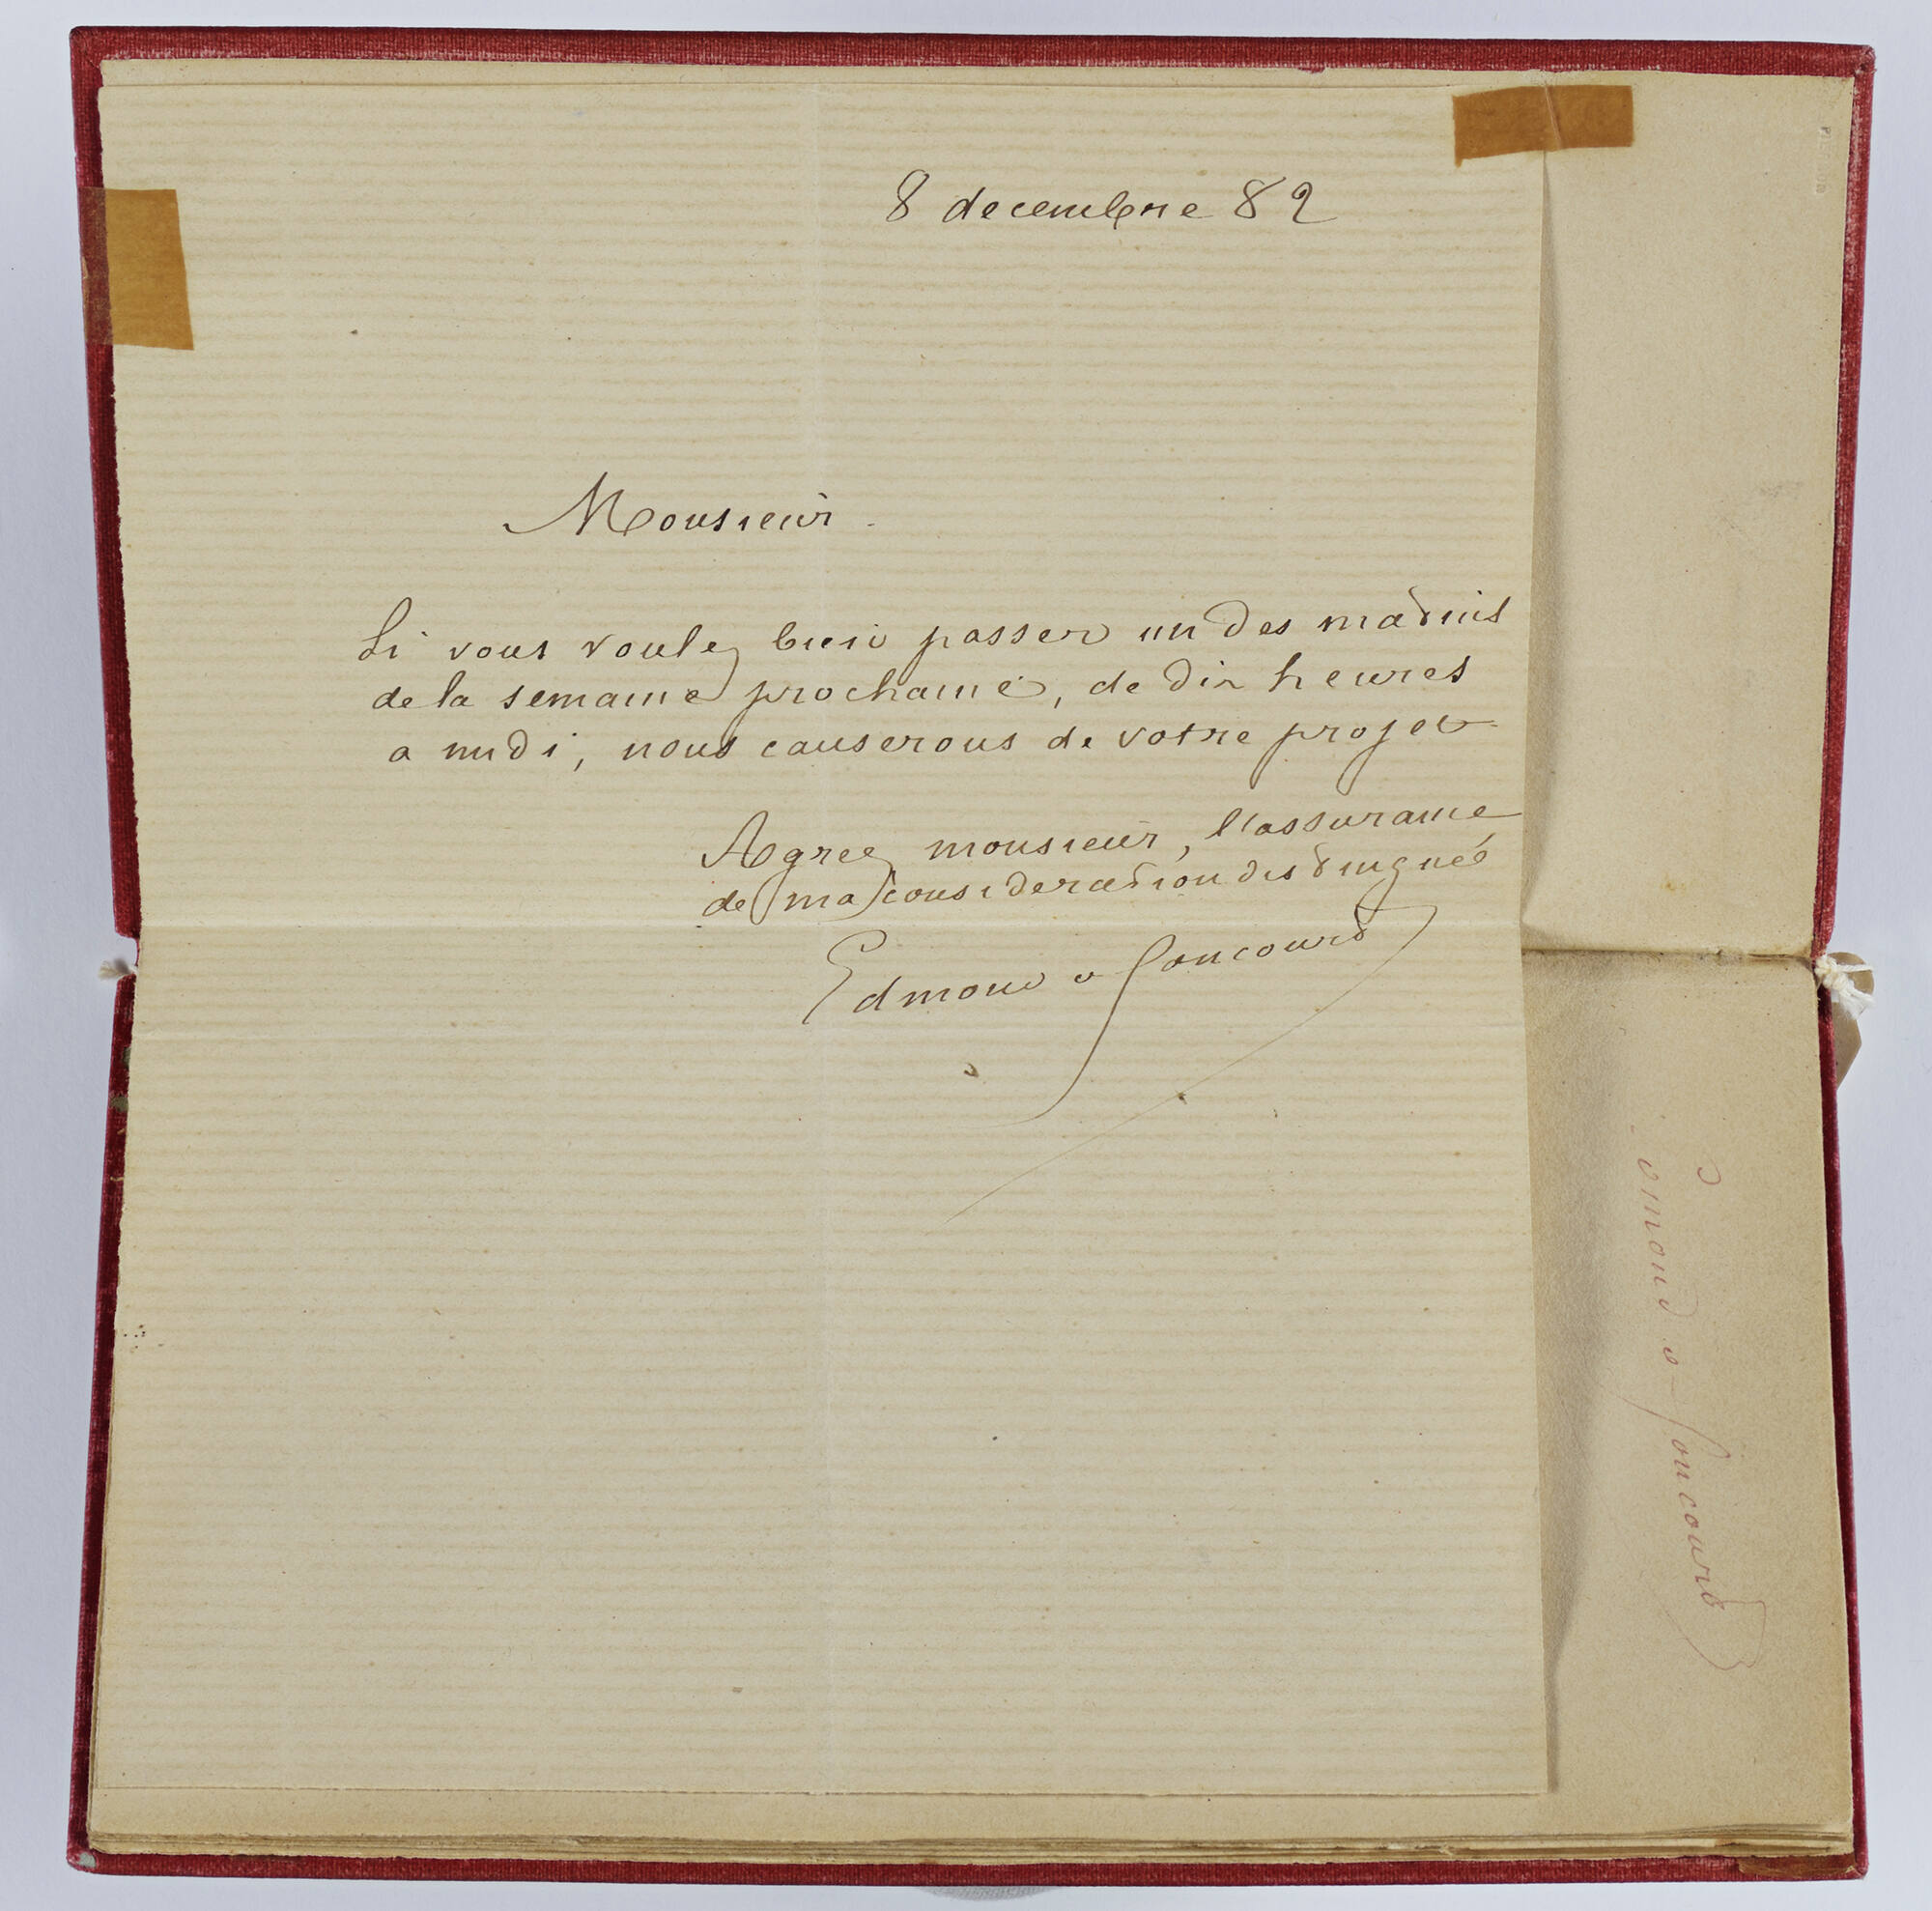 8 decembre 82
Monsieur
Si vous voulez bien passer un des matins
de la semaine prochaine, de dix heures
a midi, nous causerons de votre projet
Agreez monsieur, l'assurance
de ma consideration distinguée
Edmond de Goncourt
Edmond de Goncourt